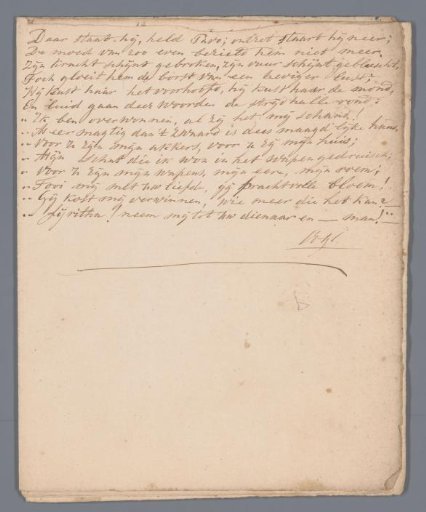 Daar staat hij, held Thro; ontzet staart hij neer;
De moed van zoo even bezielt hem niet meer,
Zijn kracht schijnt gebroken, zijn vuur schijnt gebluscht,
Toch gloeit hem de borst van een heviger lust;
Hij kust haar het voorhoofd, hij kust haar de mond,
En luid gaan deez' woorden de strijdhalle rond:
„Ik ben overwonnen, al zij het mij schand!
„Meer magtig dan 't zwaard is dees maagdlijke hand,
„Voor U zijn mijn akkers, voor U zij mijn huis,
„Mijn schat die ik won in het wapengedruisch,
„Voor U zijn mijn wapens, mijn eer, mijn roem,
„Tooi mij met uw liefde, gij prachtvolle bloem!
„Gij kost mij verwinnen, wie meer die het kan?
neem mij tot uw dienaar en — man!"